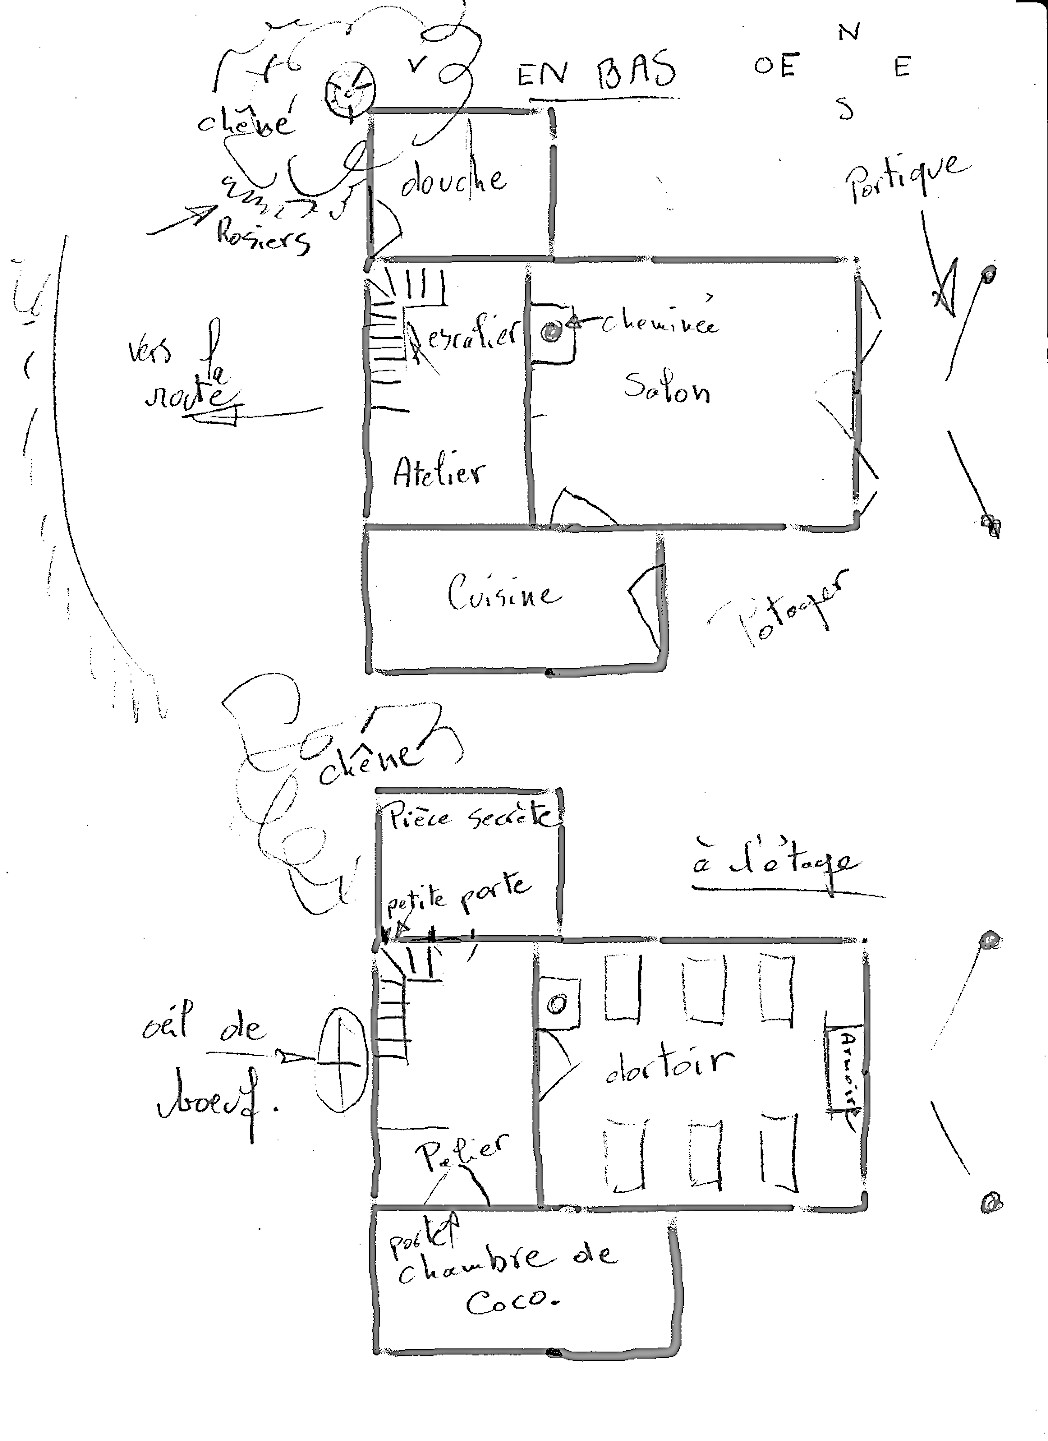 N
EN BAS
OE E
S
chêne
douche
Portique
Rosiers
escalier
cheminée
vers la
route
Salon
Atelier
Cuisine
Potager
chêne
Pièce secrète
à l'étage
petite porte
œil de
boeuf.
dortoir
Armoire
Palier
porte
chambre de
Coco.